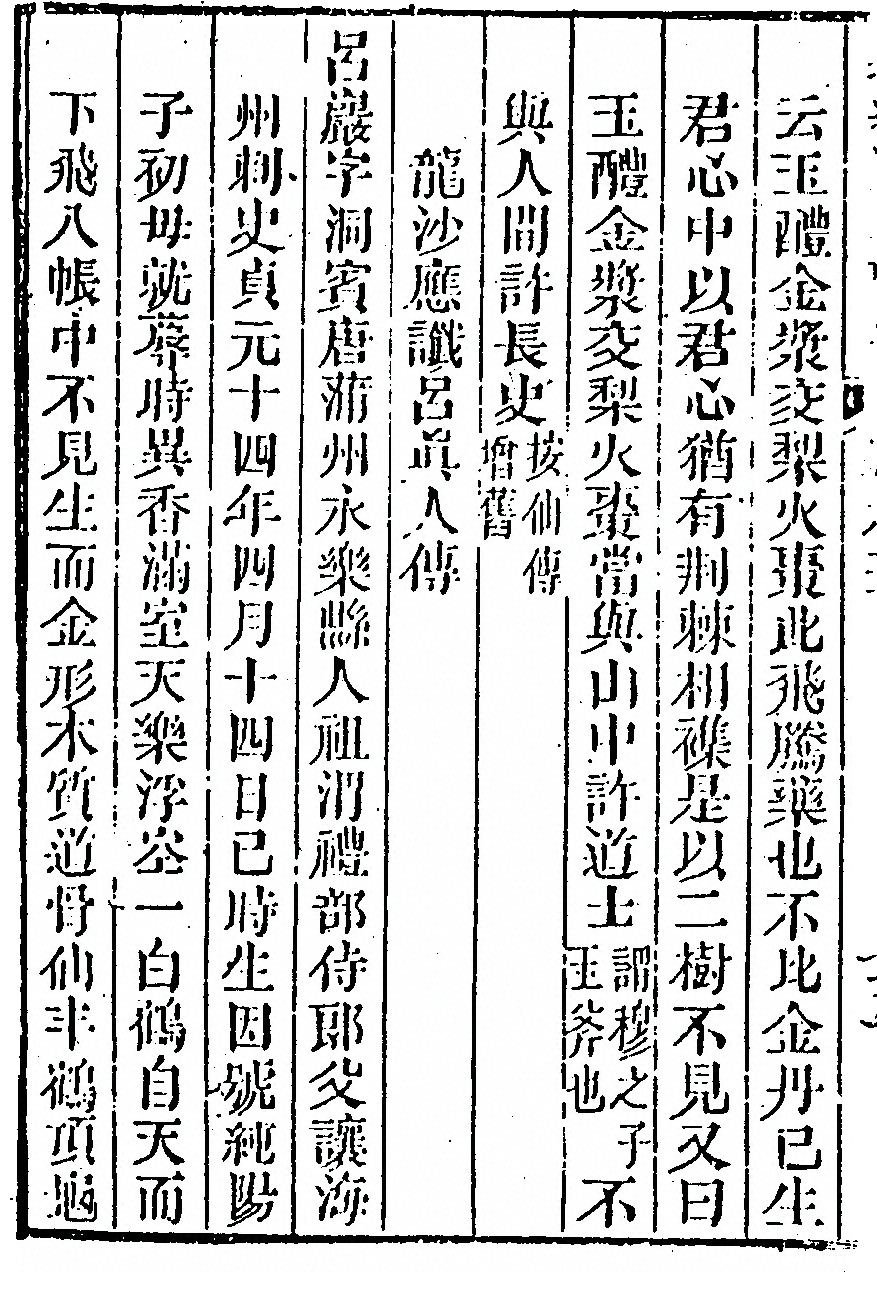 云玉醴金漿交梨火棗此飛騰藥也不比金丹已生
君心中以君心猶有荆棘相襍是以二樹不見又曰
玉醴金漿交梨火棗當與山中許道士謂穆之子玉斧也不
與人間許長史按仙傳增舊
龍沙應讖呂眞人傳
呂巖字洞賓唐蒲州永樂縣人祖渭禮部侍郎父讓海
州刺史貞元十四年四月十四日巳時生因號純陽
子初母就蓐時異香滿室天樂浮空一白鶴自天而
下飛入帳中不見生而金形木質道骨仙丰鶴頂龜